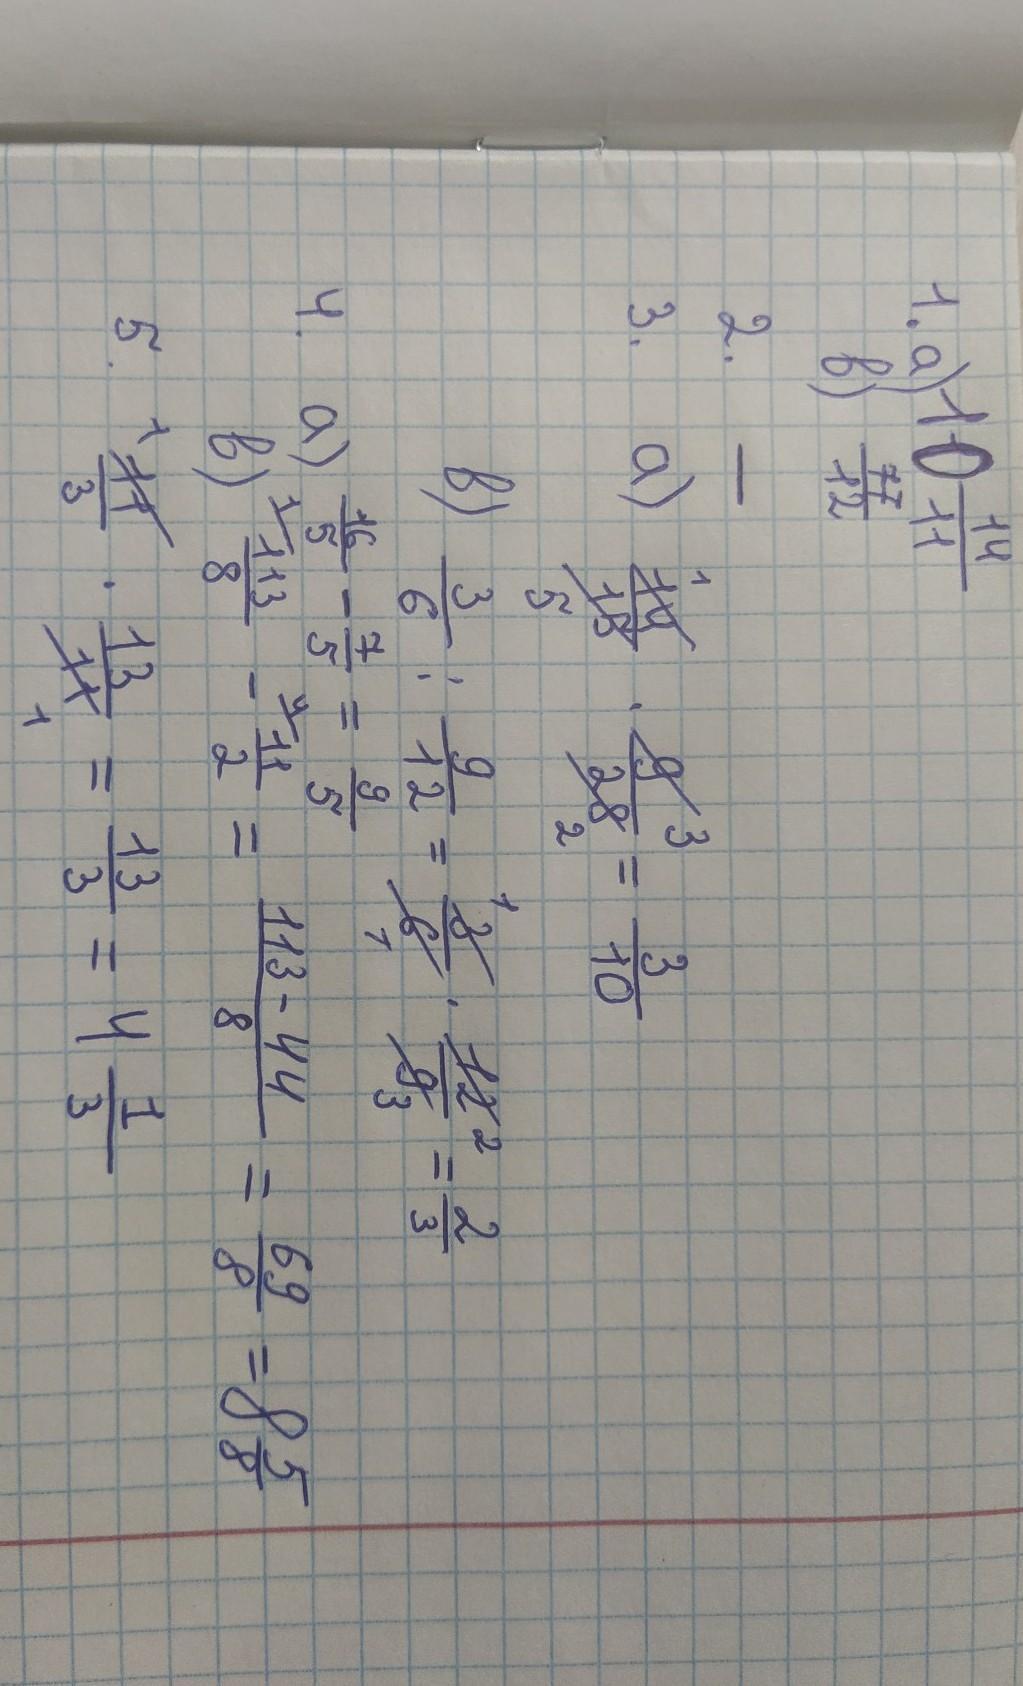 1. а) 10 14/11
в) 77/12
2. —
3. а) 14/15 · 9/28 = 3/10
в) 3/6 : 9/12 = 3/6 · 12/9 = 2/3
4. а) 16/5 - 7/5 = 9/5
в) 113/8 - 11/2 = 113-44/8 = 69/8 = 8 5/8
5. 11/3 · 13/11 = 13/3 = 4 1/3